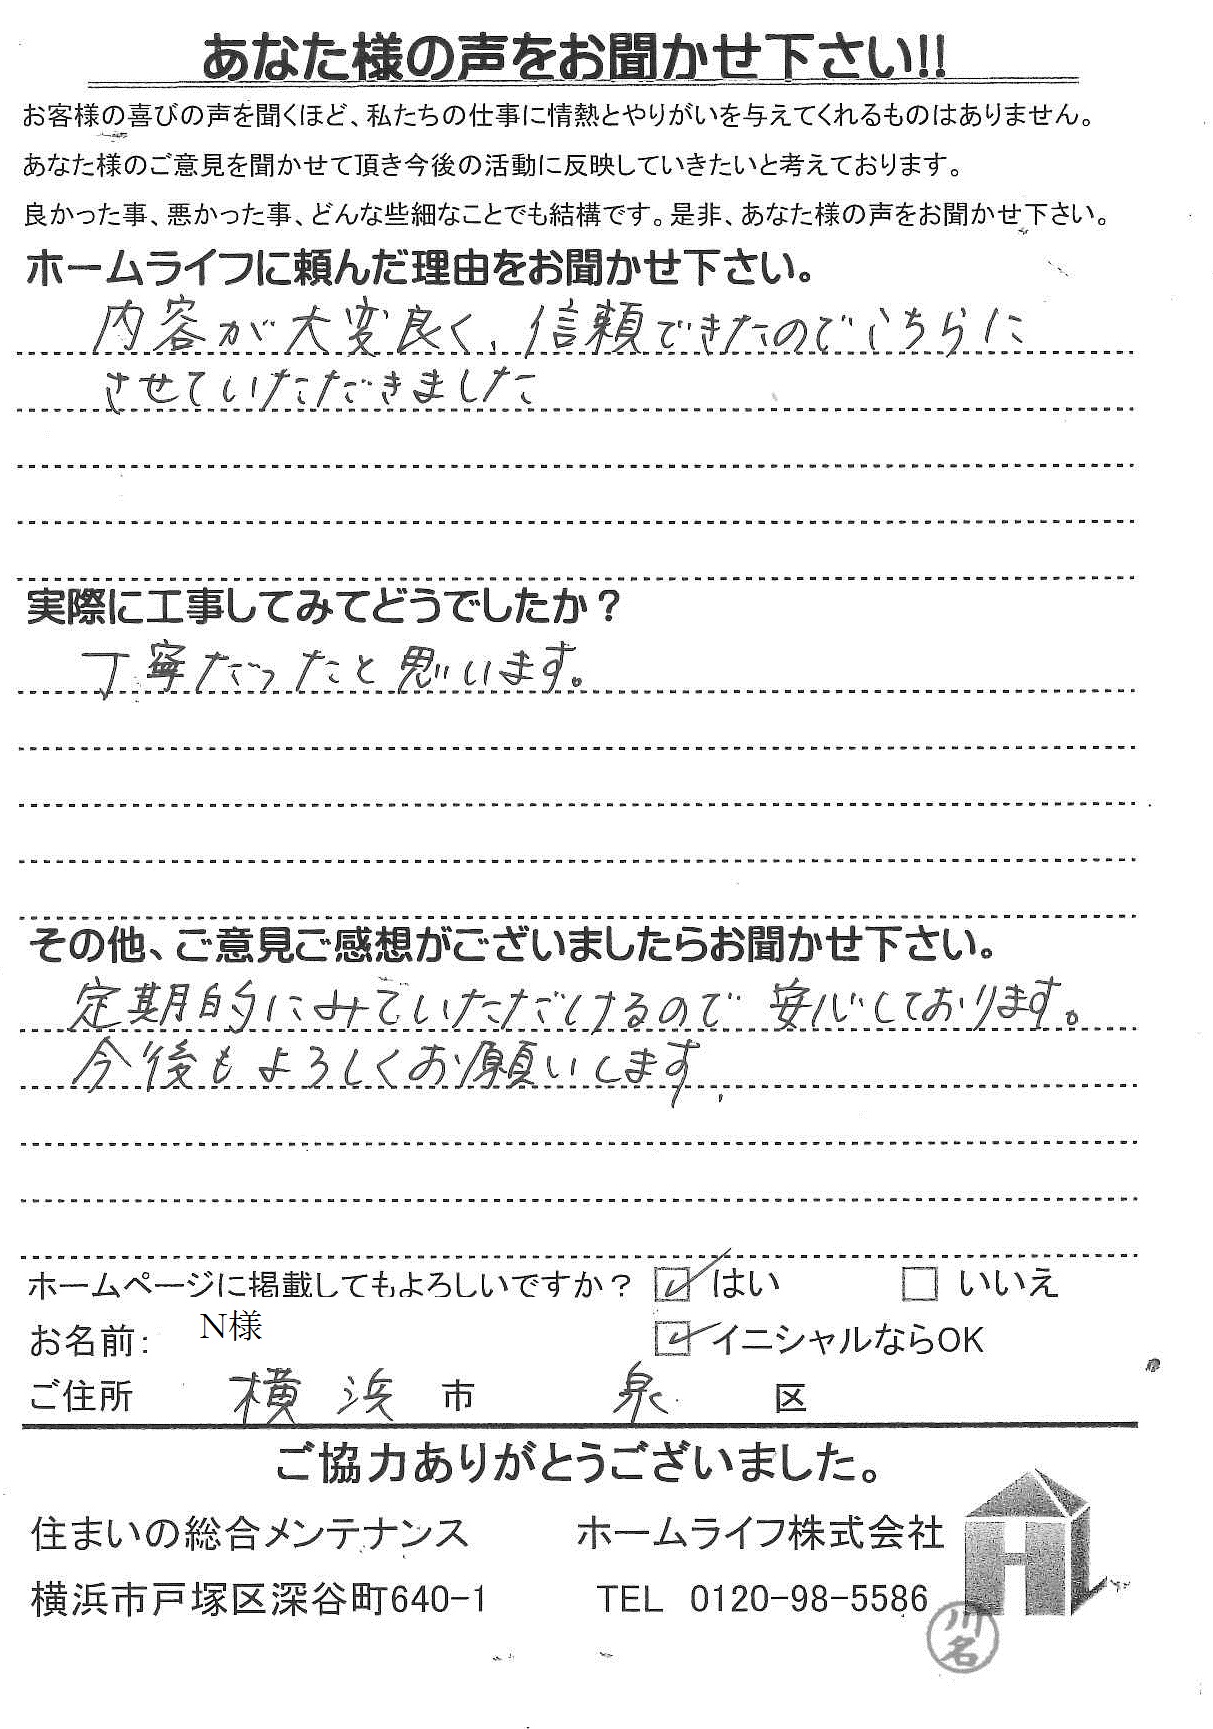 あなた様の声をお聞かせ下さい!!
お客様の喜びの声を聞くほど、私たちの仕事に情熱とやりがいを与えてくれるものはありません。
あなた様のご意見を聞かせて頂き今後の活動に反映していきたいと考えております。
良かった事、悪かった事、どんな些細なことでも結構です。是非、あなた様の声をお聞かせ下さい。
ホームライフに頼んだ理由をお聞かせ下さい。
内容が大変良く、信頼できたのでこちらに
させていただきました
実際に工事してみてどうでしたか？
丁寧だったと思います。
その他、ご意見ご感想がございましたらお聞かせ下さい。
定期的にみていただけるので安心しております。
今後もよろしくお願いします.
ホームページに掲載してもよろしいですか？ ☑ はい □ いいえ
お名前: N様 ☑ イニシャルならOK
ご住所 横浜 市 泉 区
ご協力ありがとうございました。
住まいの総合メンテナンス ホームライフ株式会社
横浜市戸塚区深谷町640-1 TEL 0120-98-5586
川名